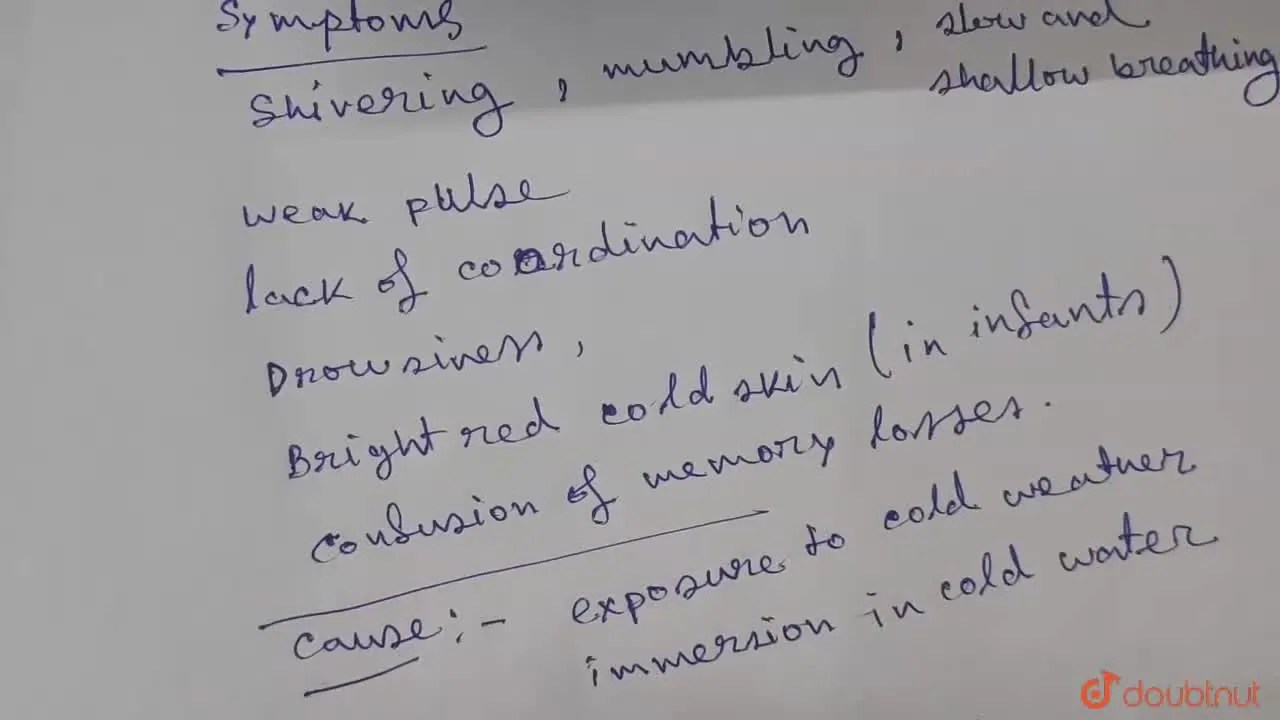 Symptoms
Shivering, mumbling, slow and
shallow breathing
weak pulse
lack of coordination
Drowsiness,
Bright red cold skin (in infants)
confusion of memory losses.
cause:- exposure to cold weather
immersion in cold water
doubtnut